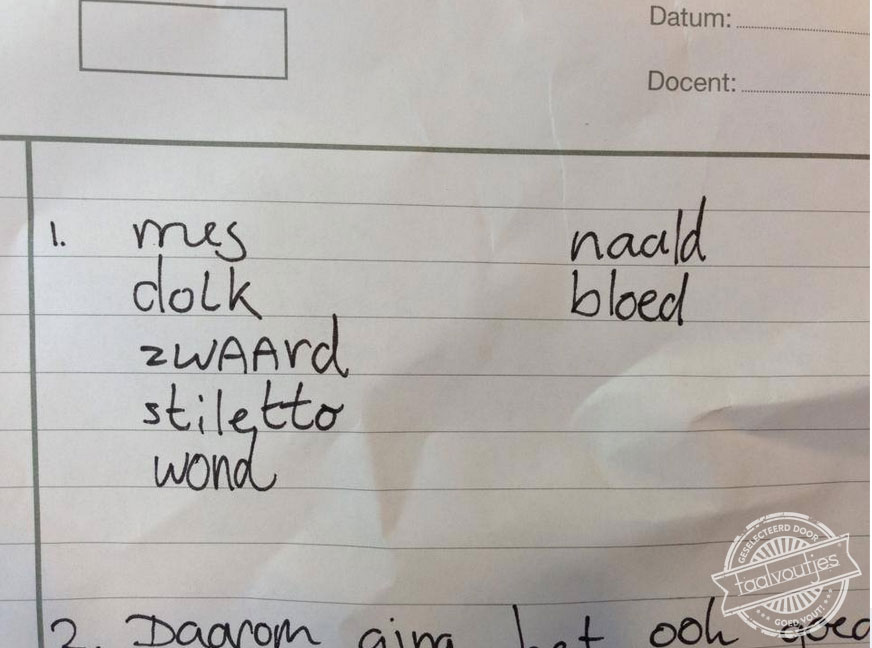 Datum:
Docent:
1. mes
dolk
zwAArd
stiletto
wond
naald
bloed
2. Daarom ging het ook goed
GESELECTEERD DOOR
taalvoutjes
GOED FOUT!